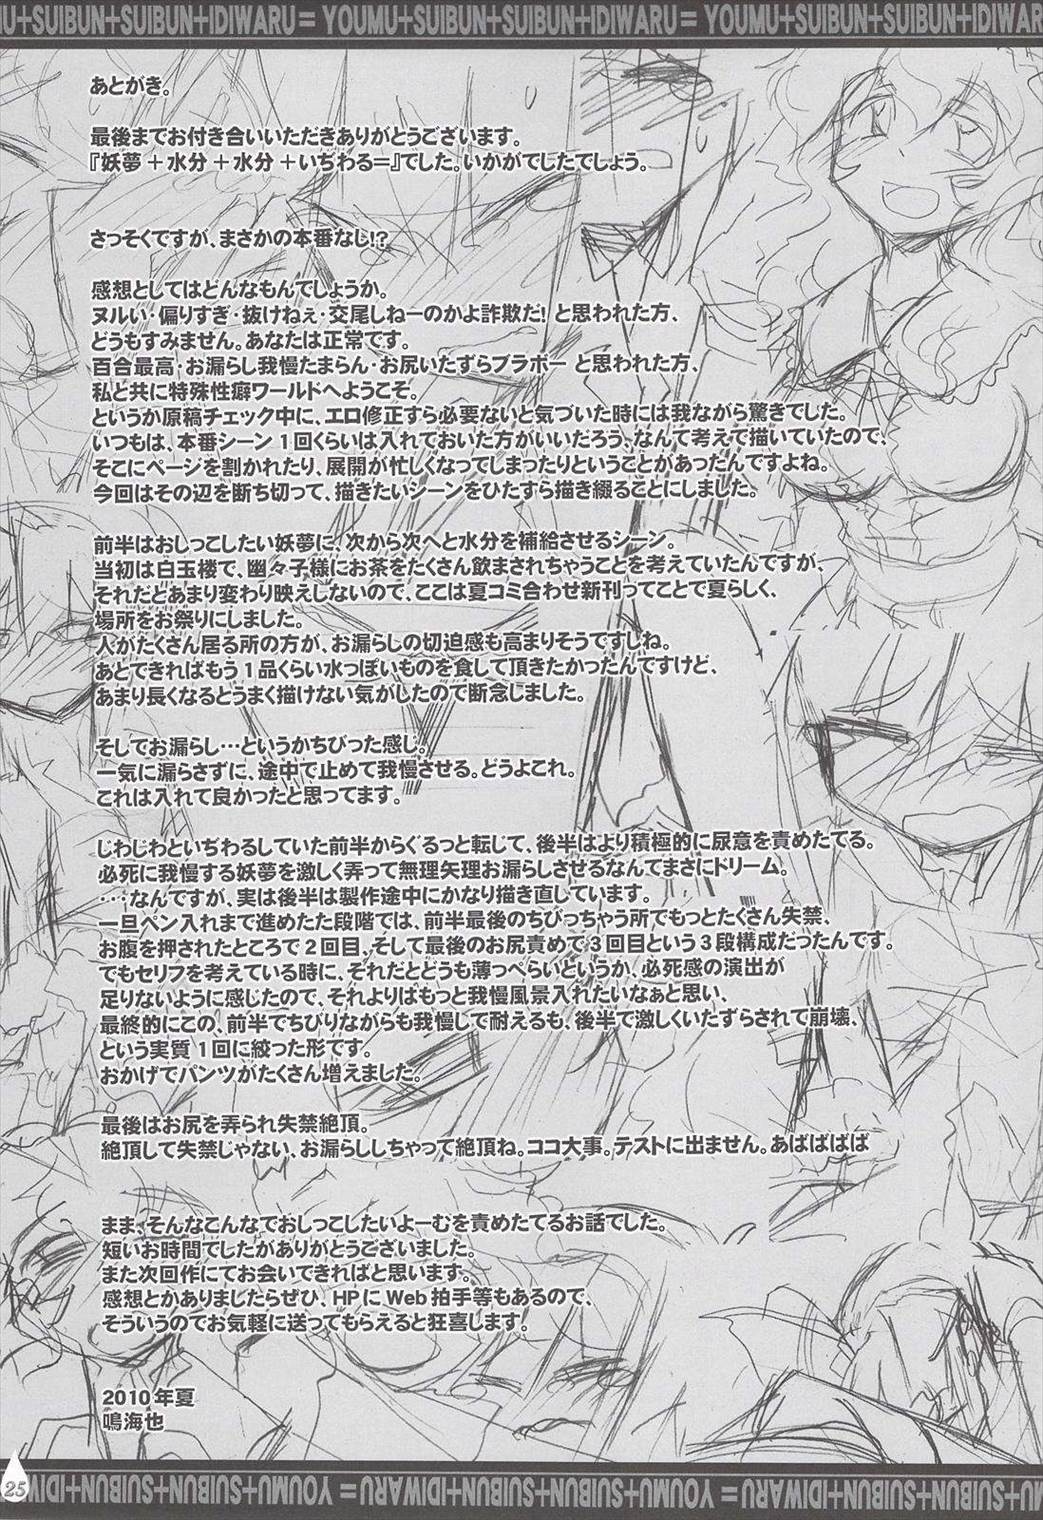 MU+SUIBUN+SUIBUN+IDIWARU= YOUMU+SUIBUN+SUIBUN+IDIWARU= YOUMU+SUIBUN+SUIBUN+IDIWAR
あとがき。
最後までお付き合いいただきありがとうございます。
『妖夢＋水分＋水分＋いぢわる＝』でした。いかがでしたでしょう。
さっそくですが、まさかの本番なし!?
感想としてはどんなもんでしょうか。
ヌルい・偏りすぎ・抜けねぇ・交尾しねーのかよ詐欺だ! と思われた方、
どうもすみません。あなたは正常です。
百合最高・お漏らし我慢たまらん・お尻いたずらブラボー と思われた方、
私と共に特殊性癖ワールドへようこそ。
というか原稿チェック中に、エロ修正すら必要ないと気づいた時には我ながら驚きでした。
いつもは、本番シーン1回くらいは入れておいた方がいいだろう、なんて考えて描いていたので、
そこにページを割かれたり、展開が忙しくなってしまったりということがあったんですよね。
今回はその辺を断ち切って、描きたいシーンをひたすら描き綴ることにしました。
前半はおしっこしたい妖夢に、次から次へと水分を補給させるシーン。
当初は白玉楼で、幽々子様にお茶をたくさん飲まされちゃうことを考えていたんですが、
それだとあまり変わり映えしないので、ここは夏コミ合わせ新刊ってことで夏らしく、
場所をお祭りにしました。
人がたくさん居る所の方が、お漏らしの切迫感も高まりそうですしね。
あとできればもう1品くらい水っぽいものを食して頂きたかったんですけど、
あまり長くなるとうまく描けない気がしたので断念しました。
そしてお漏らし…というかちびった感じ。
一気に漏らさずに、途中で止めて我慢させる。どうよこれ。
これは入れて良かったと思ってます。
じわじわといぢわるしていた前半からぐるっと転じて、後半はより積極的に尿意を責めたてる。
必死に我慢する妖夢を激しく弄って無理矢理お漏らしさせるなんてまさにドリーム。
・・・なんですが、実は後半は製作途中にかなり描き直しています。
一旦ペン入れまで進めたた段階では、前半最後のちびっちゃう所でもっとたくさん失禁、
お腹を押されたところで2回目、そして最後のお尻責めで3回目という3段構成だったんです。
でもセリフを考えている時に、それだとどうも薄っぺらいというか、必死感の演出が
足りないように感じたので、それよりはもっと我慢風景入れたいなぁと思い、
最終的にこの、前半でちびりながらも我慢して耐えるも、後半で激しくいたずらされて崩壊、
という実質1回に絞った形です。
おかげでパンツがたくさん増えました。
最後はお尻を弄られ失禁絶頂。
絶頂して失禁じゃない、お漏らししちゃって絶頂ね。ココ大事。テストに出ません。あばばばば
まま、そんなこんなでおしっこしたいよーむを責めたてるお話でした。
短いお時間でしたがありがとうございました。
また次回作にてお会いできればと思います。
感想とかありましたらぜひ、HPにWeb拍手等もあるので、
そういうのでお気軽に送ってもらえると狂喜します。
2010年夏
鳴海也
25
YOUMU+SUIBUN+SUIBUN+IDIWARU= YOUMU+SUIBUN+SUIBUN+IDIW